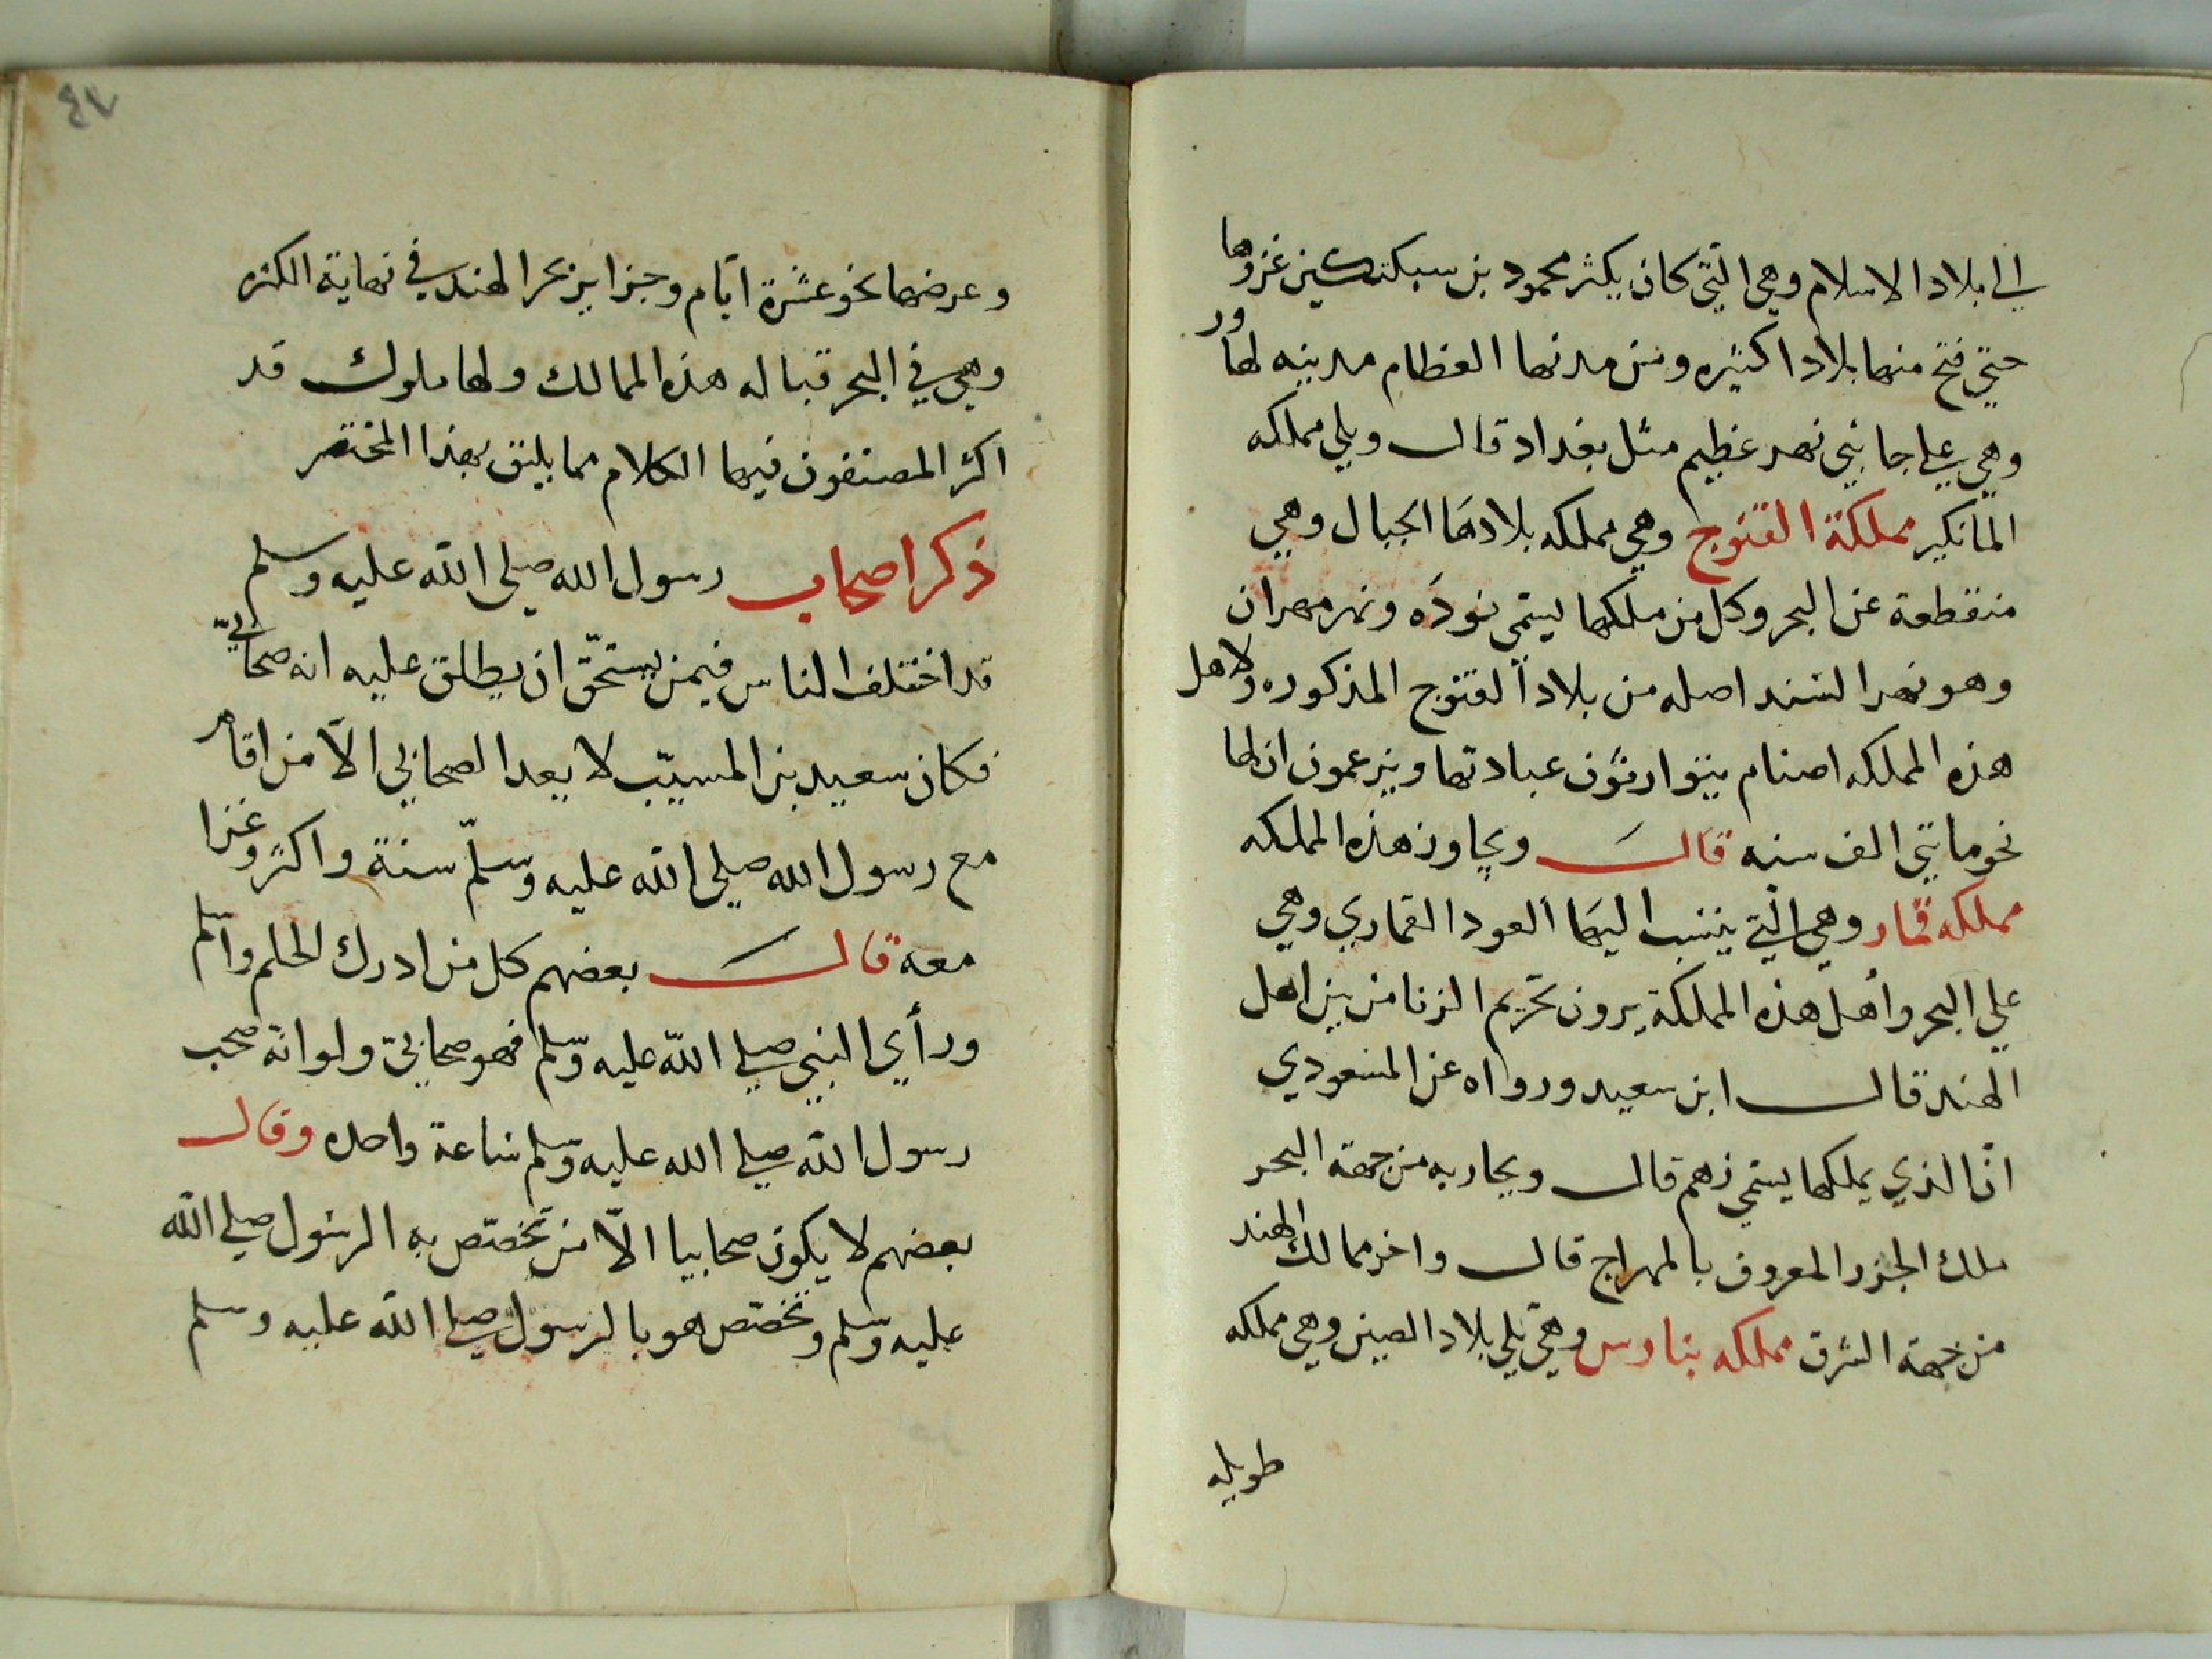 الي بلاد الاسلام وهي التي كان يكثر محمود بن سبكتكين غزوها
حتي فتح منها بلادا كثيره ومن مدنها العظام مدينه لهاور
وهي علي جانبي نهر عظيم مثل بغداد قال ويلي مملكه
المانكير مملكة القنوج وهي مملكه بلادها الجبال وهي
منقطعة عن البحر وكل من ملكها يسمي نوده ونهر مهران
وهو نهر السند اصله من بلاد القنوج المذكوره ولاهل
هذه المملكه اصنام يتوارثون عبادتها ويزعمون ان لها
نحو مايتي الف سنه قال ويجاوز هذه المملكه
مملكه قمار وهي التي ينسب اليها العود القماري وهي
علي البحر واهل هذه المملكة يرون تحريم الزنا من بين اهل
الهند قال ابن سعيد ورواه عن المسعودي
ان الذي يملكها يسمي زهم قال ويحاربه من جهة البحر
ملك الجزر المعروف بالمهراج قال واخر ممالك الهند
من جهة الشرق مملكه بناوس وهي تلي بلاد الصين وهي مملكه
طويله
٤٧
وعرضها نحو عشرة ايام وجزاير بحر الهند في نهاية الكثره
وهي في البحر قباله هذه الممالك ولها ملوك قد
اكثر المصنفون فيها الكلام مما يليق بهذا المختصر
ذكر اصحاب رسول الله صلي الله عليه وسلم
قد اختلف الناس فيمن يستحق ان يطلق عليه انه صحابي
فكان سعيد بن المسيب لا يعد الصحابي الا من اقام
مع رسول الله صلي الله عليه وسلم سنة واكثر وغزا
معه قال بعضهم كل من ادرك الحلم واسلم
ورأي النبي صلي الله عليه وسلم فهو صحابي ولو انه صحب
رسول الله صلي الله عليه وسلم ساعة واحده وقال
بعضهم لا يكون صحابيا الا من تخصص به الرسول صلي الله
عليه وسلم وتخصص هو بالرسول صلي الله عليه وسلم